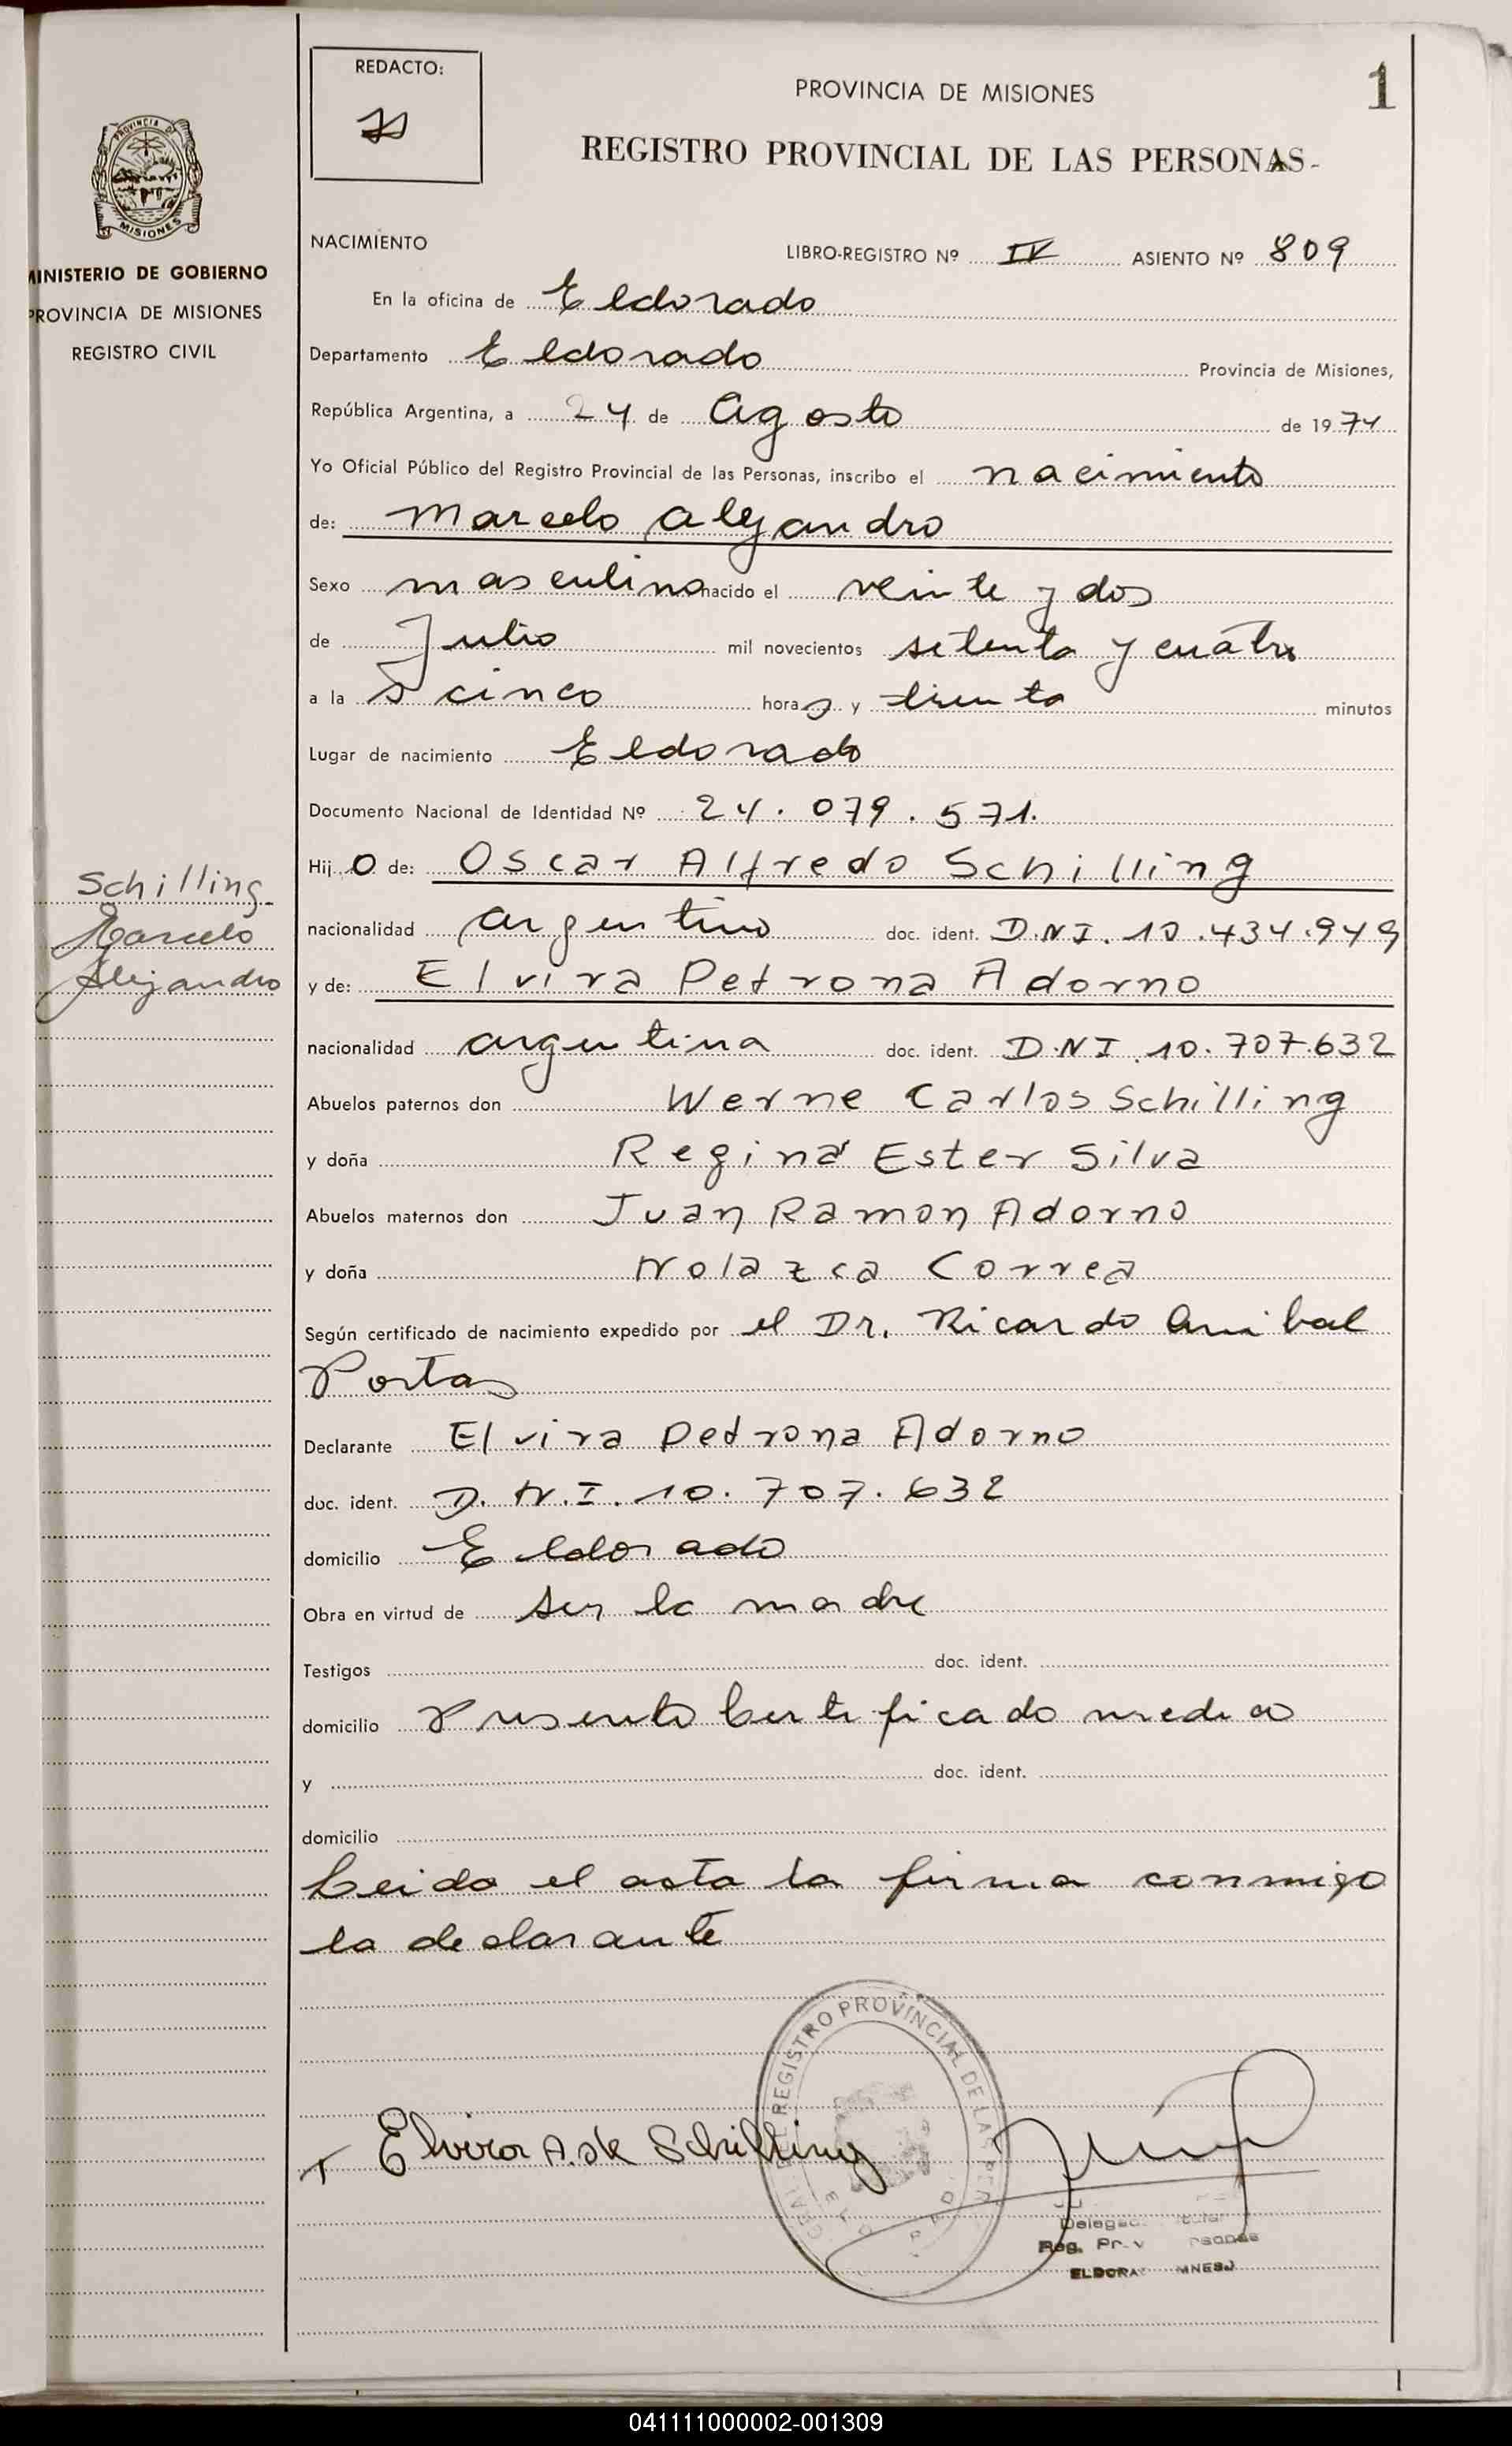 REDACTO:
PROVINCIA DE MISIONES
1
REGISTRO PROVINCIAL DE LAS PERSONAS-
PROVINCIA DE
MISIONES
MINISTERIO DE GOBIERNO
PROVINCIA DE MISIONES
REGISTRO CIVIL
NACIMIENTO
LIBRO-REGISTRO Nº IV ASIENTO Nº 809
En la oficina de Eldorado
Departamento Eldorado Provincia de Misiones,
República Argentina, a 24 de Agosto de 1974
Yo Oficial Público del Registro Provincial de las Personas, inscribo el nacimiento
de: Marcelo Alejandro
Sexo masculino nacido el veinte y dos
de Julio mil novecientos setenta y cuatro
a las cinco horas y treinta minutos
Lugar de nacimiento Eldorado
Documento Nacional de Identidad Nº 24.079.571.
Hijo de: Oscar Alfredo Schilling
Schilling
Marcelo
Alejandro
nacionalidad argentino doc. ident. D.N.I. 10.434.949
y de: Elvira Petrona Adorno
nacionalidad argentina doc. ident. D.N.I. 10.707.632
Abuelos paternos don Werne Carlos Schilling
y doña Regina Ester Silva
Abuelos maternos don Juan Ramon Adorno
y doña Nolazca Correa
Según certificado de nacimiento expedido por el Dr. Ricardo Anibal
Portas
Declarante Elvira Petrona Adorno
doc. ident. D.N.I. 10.707.632
domicilio Eldorado
Obra en virtud de ser la madre
Testigos doc. ident.
domicilio Presento Certificado medico
y doc. ident.
domicilio
Leida el acta la firma conmigo
la declarante
REGISTRO PROVINCIAL DE LAS PER
Elvira A. de Schilling
ELDORA
041111000002-001309